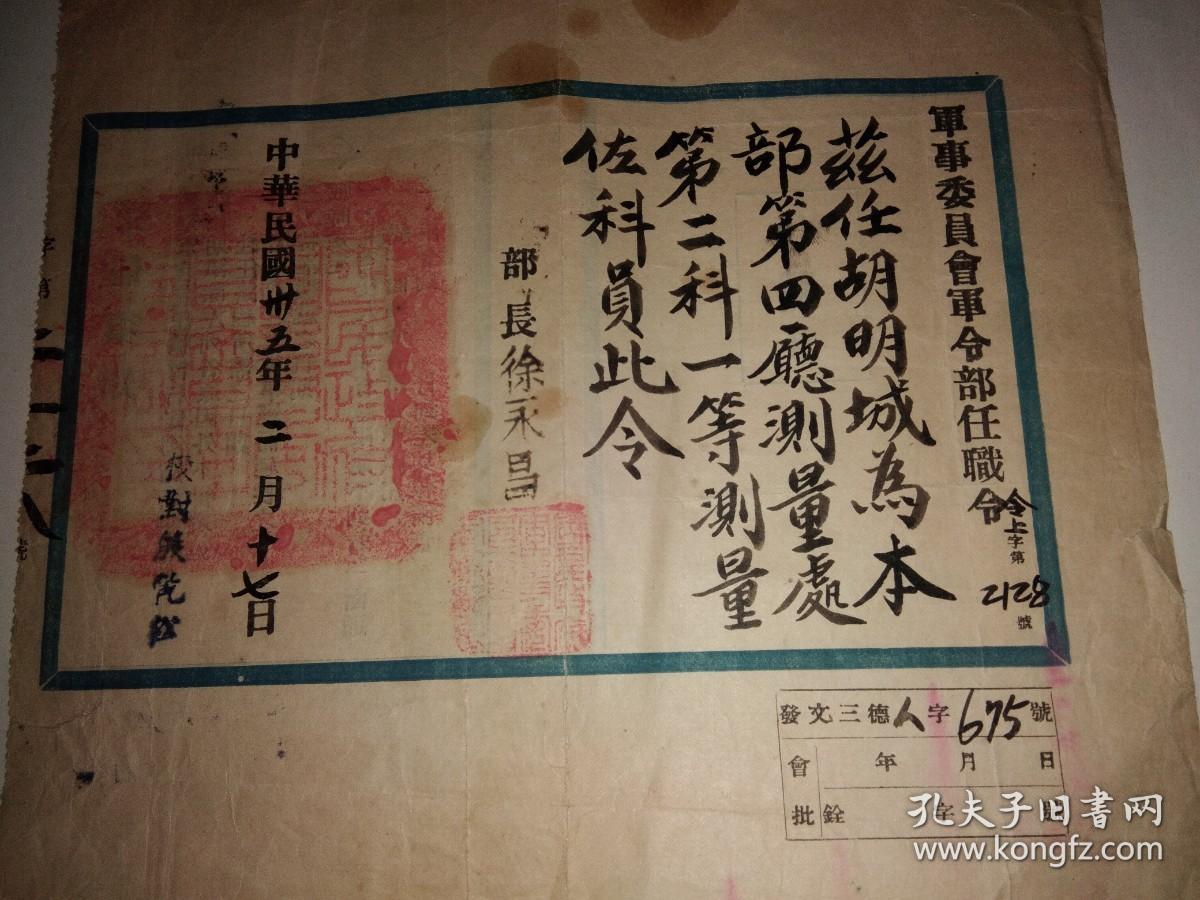 軍事委員會軍令部任職令
令上字第2128號
茲任胡明城為本
部第四廳測量處
第二科一等測量
佐科員此令
部長徐永昌
中華民國卅五年二月十七日
校對
字第二一二八號
發文三德人字675號
會 年 月 日
批 銓 字 號
孔夫子旧书网
www.kongfz.com